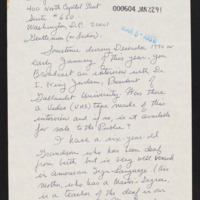 400 North Capitol Street
Suite #650
Washington D.C. 20001
000604 JAN 22 91
Gentlemen (or Ladies)
Sometime during December 1990 or
early January of this year, you
Broadcast an interview with Dr.
I. King Jordan, President
Gallaudet University. Was there
a Video (VHS) tape made of this
interview and if so, is it available
for sale to the Public?
I have a six year old
Grandson who has been deaf
from birth but is very well versed
in American Sign Language (His
mother, who has a Master's Degree,
is a teacher of the deaf in our